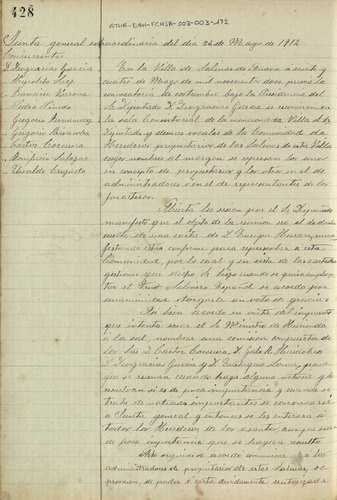 428
ATHA-DAH-FCHSA-003-003-172
Junta general extraordinaria del dia 24 de Mayo de 1912
Concurrentes
D. Deogracias Garcia
Gregorio Fernandez
Castor Corcuera
Bonifacio Salazar
En la Villa de Salinas de a veinte y
cuatro de Mayo de mil novecientos doce previa la
convocatoria de costumbre bajo la Presidencia del
Sr. Diputado D. Deogracias Garcia se reunieron en
la sala Consistorial de la mencionada Villa el Sr.
Diputado y demas vocales de la Comunidad de
Herederos propietarios de las Salinas de esta Villa
cuyos nombres al margen se espresan los unos
en concepto de propietarios y los otros en el de
administradores o en el de representantes de los
Abierta la sesion por el Sr. Diputado
manifestó que el objeto de la reunion era el de dar
cuenta de una carta de D. Enrique mani
festando estar conforme para representar a esta
Comunidad por lo cual y en vista de las acertadas
gestiones que hizo cuando se quiso implan
tar el Salinero Español se acordó por
unanimidad otorgarle un voto de gracias
Tambien acordó en vista del impuesto
que intenta sacar el Sr. Ministro de Hacienda
a la sal, nombrar una comision compuesta de
los Sres. D. Castor Corcuera, D. Galo
D. Deogracias Garcia y D. para
que se reunan cuando haya alguna noticia y
resuelvan si es de poca importancia y cuando se
trate de noticias importantes se convocará
a Junta general y entonces se les enterará a
todos los Herederos de los asuntos aunque sean
de poca importancia que se hayan resuelto
Acto seguido se acordo comunicar a los
administradores de propietarios de estas Salinas, se
provean de poder o carta debidamente